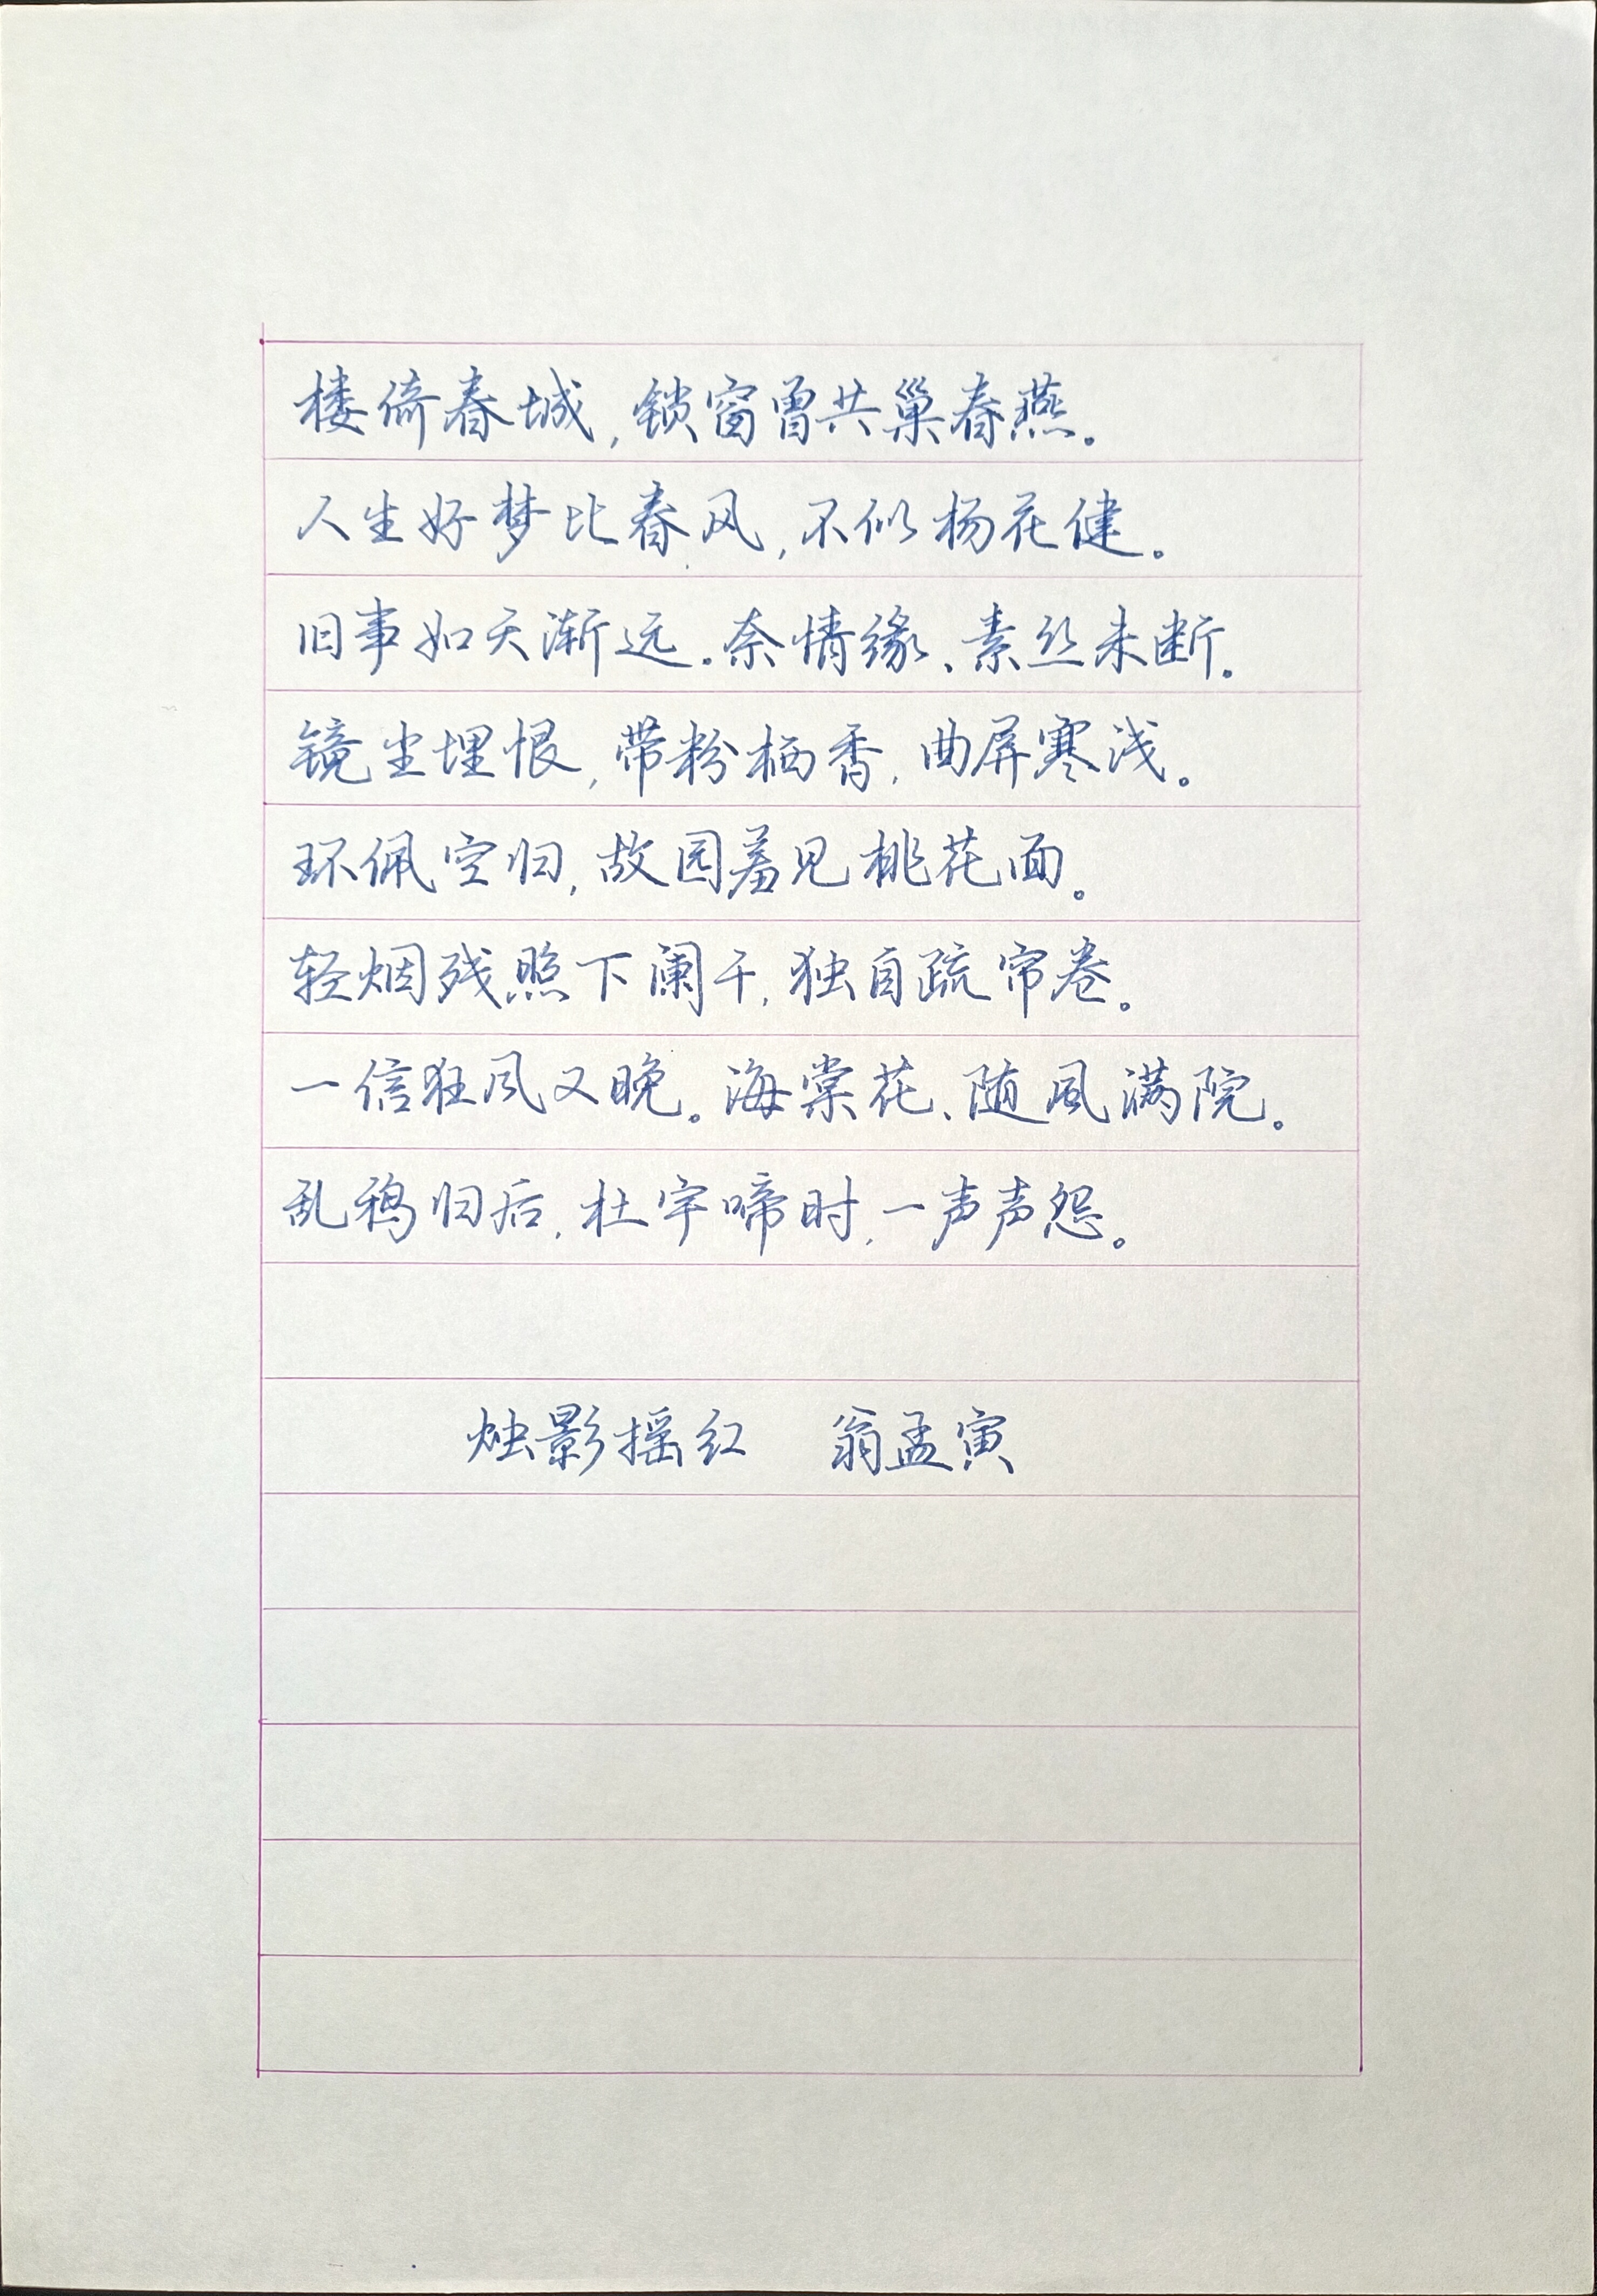 楼倚春城,锁窗曾共巢春燕。
人生好梦比春风,不似杨花健。
旧事如天渐远。奈情缘、素丝未断。
镜尘埋恨,带粉栖香,曲屏寒浅。
环佩空归,故园羞见桃花面。
轻烟残照下阑干,独自疏帘卷。
一信狂风又晚。海棠花、随風满院。
乱鸦归后,杜宇啼时,一声声怨。
烛影摇红 翁孟寅